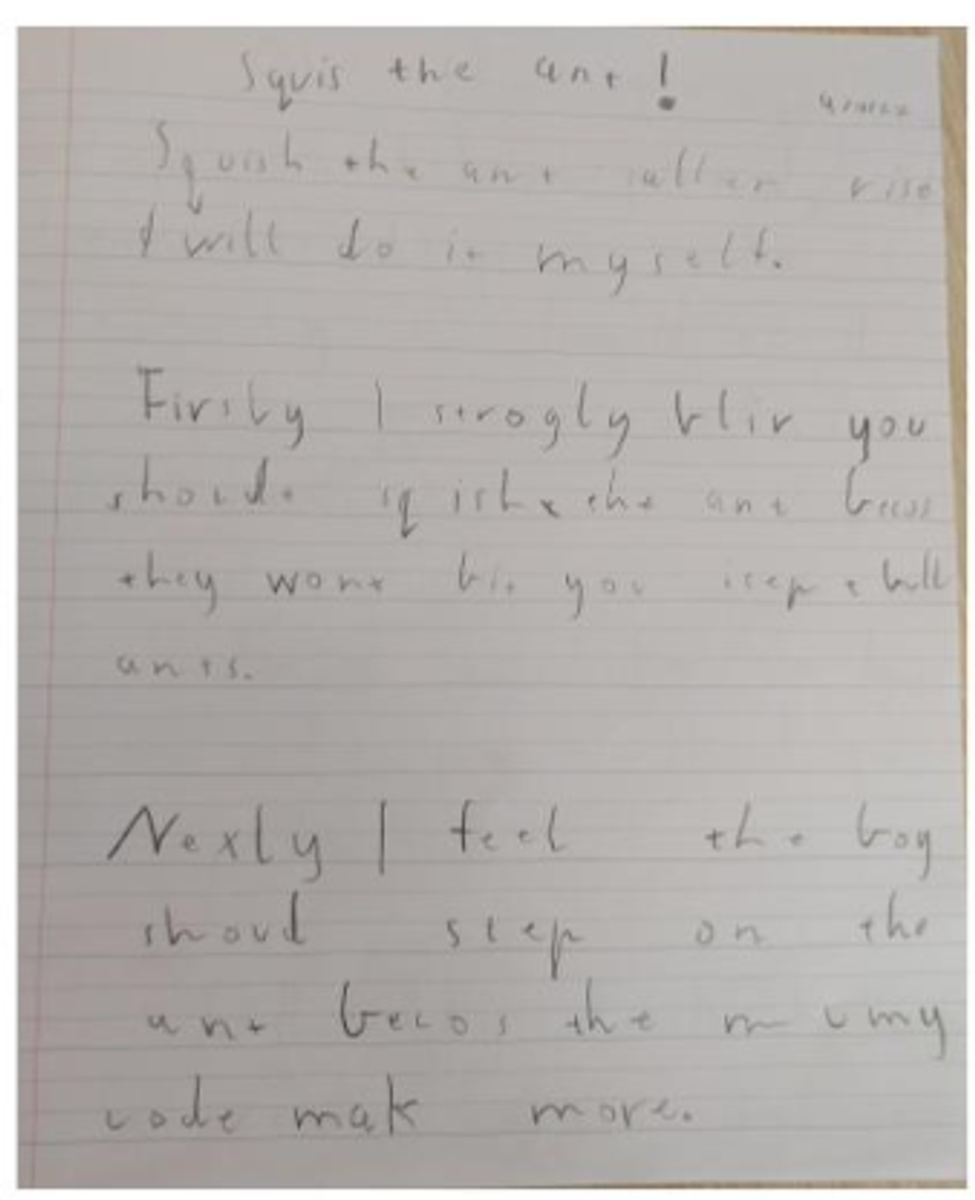 Squis the ant!
Squish the ant rise
I will do it myself.
Firsly I strogly bliv you
shoud sqish the ant becos
they wont bit you isept bull
ants.
Nexly I feel the boy
shoud step on the
ant becos the mumy
code mak more.